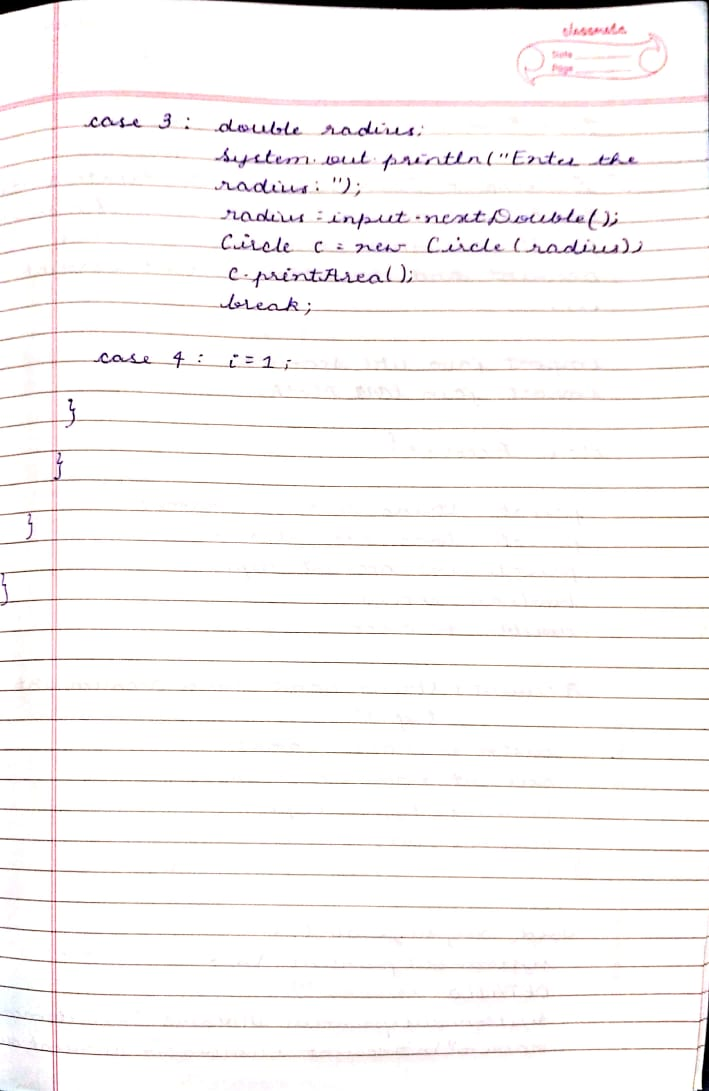 classmate
Date
Page
case 3 : double radius;
System.out.println("Enter the
radius: ");
radius = input.nextDouble();
Circle c = new Circle(radius);
c.printArea();
break;
case 4 : i = 1;
}
}
}
}